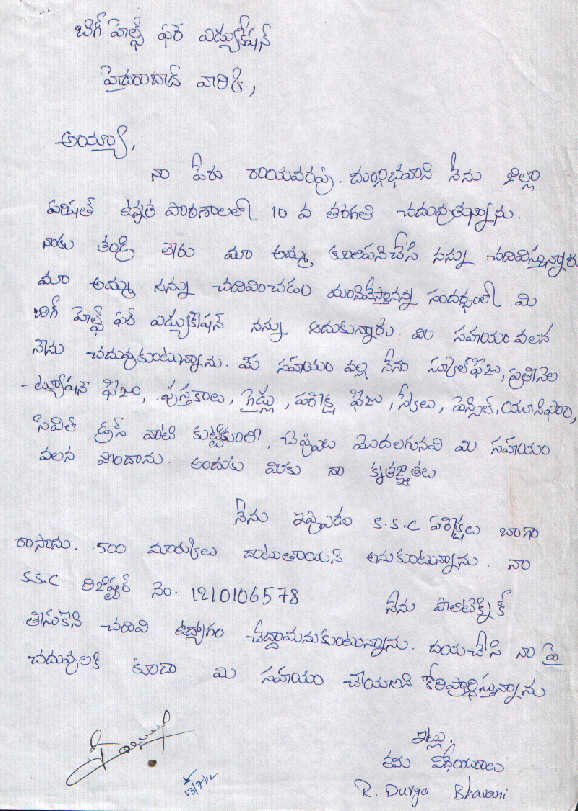 బిగ్ హెల్ప్ ఫర్ ఎడ్యుకేషన్
హైదరాబాద్ వారికి,
అయ్యా,
నా పేరు రాయవరపు. దుర్గాభవాని నేను జిల్లా
పరిషత్ ఉన్నత పాఠశాలలో 10 వ తరగతి చదువుతున్నాను.
నాకు తండ్రి లేరు మా అమ్మ కూలిపనిచేసి నన్ను చదివిస్తున్నారు
మా అమ్మ నన్ను చదివించడం మానివేస్తానన్న సందర్భంలో మీ
బిగ్ హెల్ప్ ఫర్ ఎడ్యుకేషన్ నన్ను ఆదుకున్నారు. మీ సహాయం వలన
నేను చదువుకుంటున్నాను. మీ సహాయం వల్ల నేను స్కూల్ ఫీజు, ప్రతినెల
ట్యూషన్ ఫీజు, పుస్తకాలు, గైడ్లు, పరీక్ష ఫీజు, స్కేలు, పెన్సిల్, యూనిఫారం,
సివిల్ డ్రస్ వాటి కుట్టుకూలి, చెప్పులు మొదలగునవి మీ సహాయం
వలన పొందాను. అందుకు మీకు నా కృతజ్ఞతలు
నేను ఇప్పుడు S.S.C పరీక్షలు బాగా
రాసాను. 500 మార్కులు దాటుతాయని అనుకుంటున్నాను. నా
S.S.C రిజిష్టర్ నెం. 1210106578 నేను పాలిటెక్నిక్
తీసుకొని చదివి ఉద్యోగం చేద్దామనుకుంటున్నాను. దయచేసి నా పై
చదువులకి కూడా మీ సహాయం చేయాలని కోరిప్రార్థిస్తున్నాను
ఇట్లు,
తమ విధేయురాలు
R. Durga Bhavani